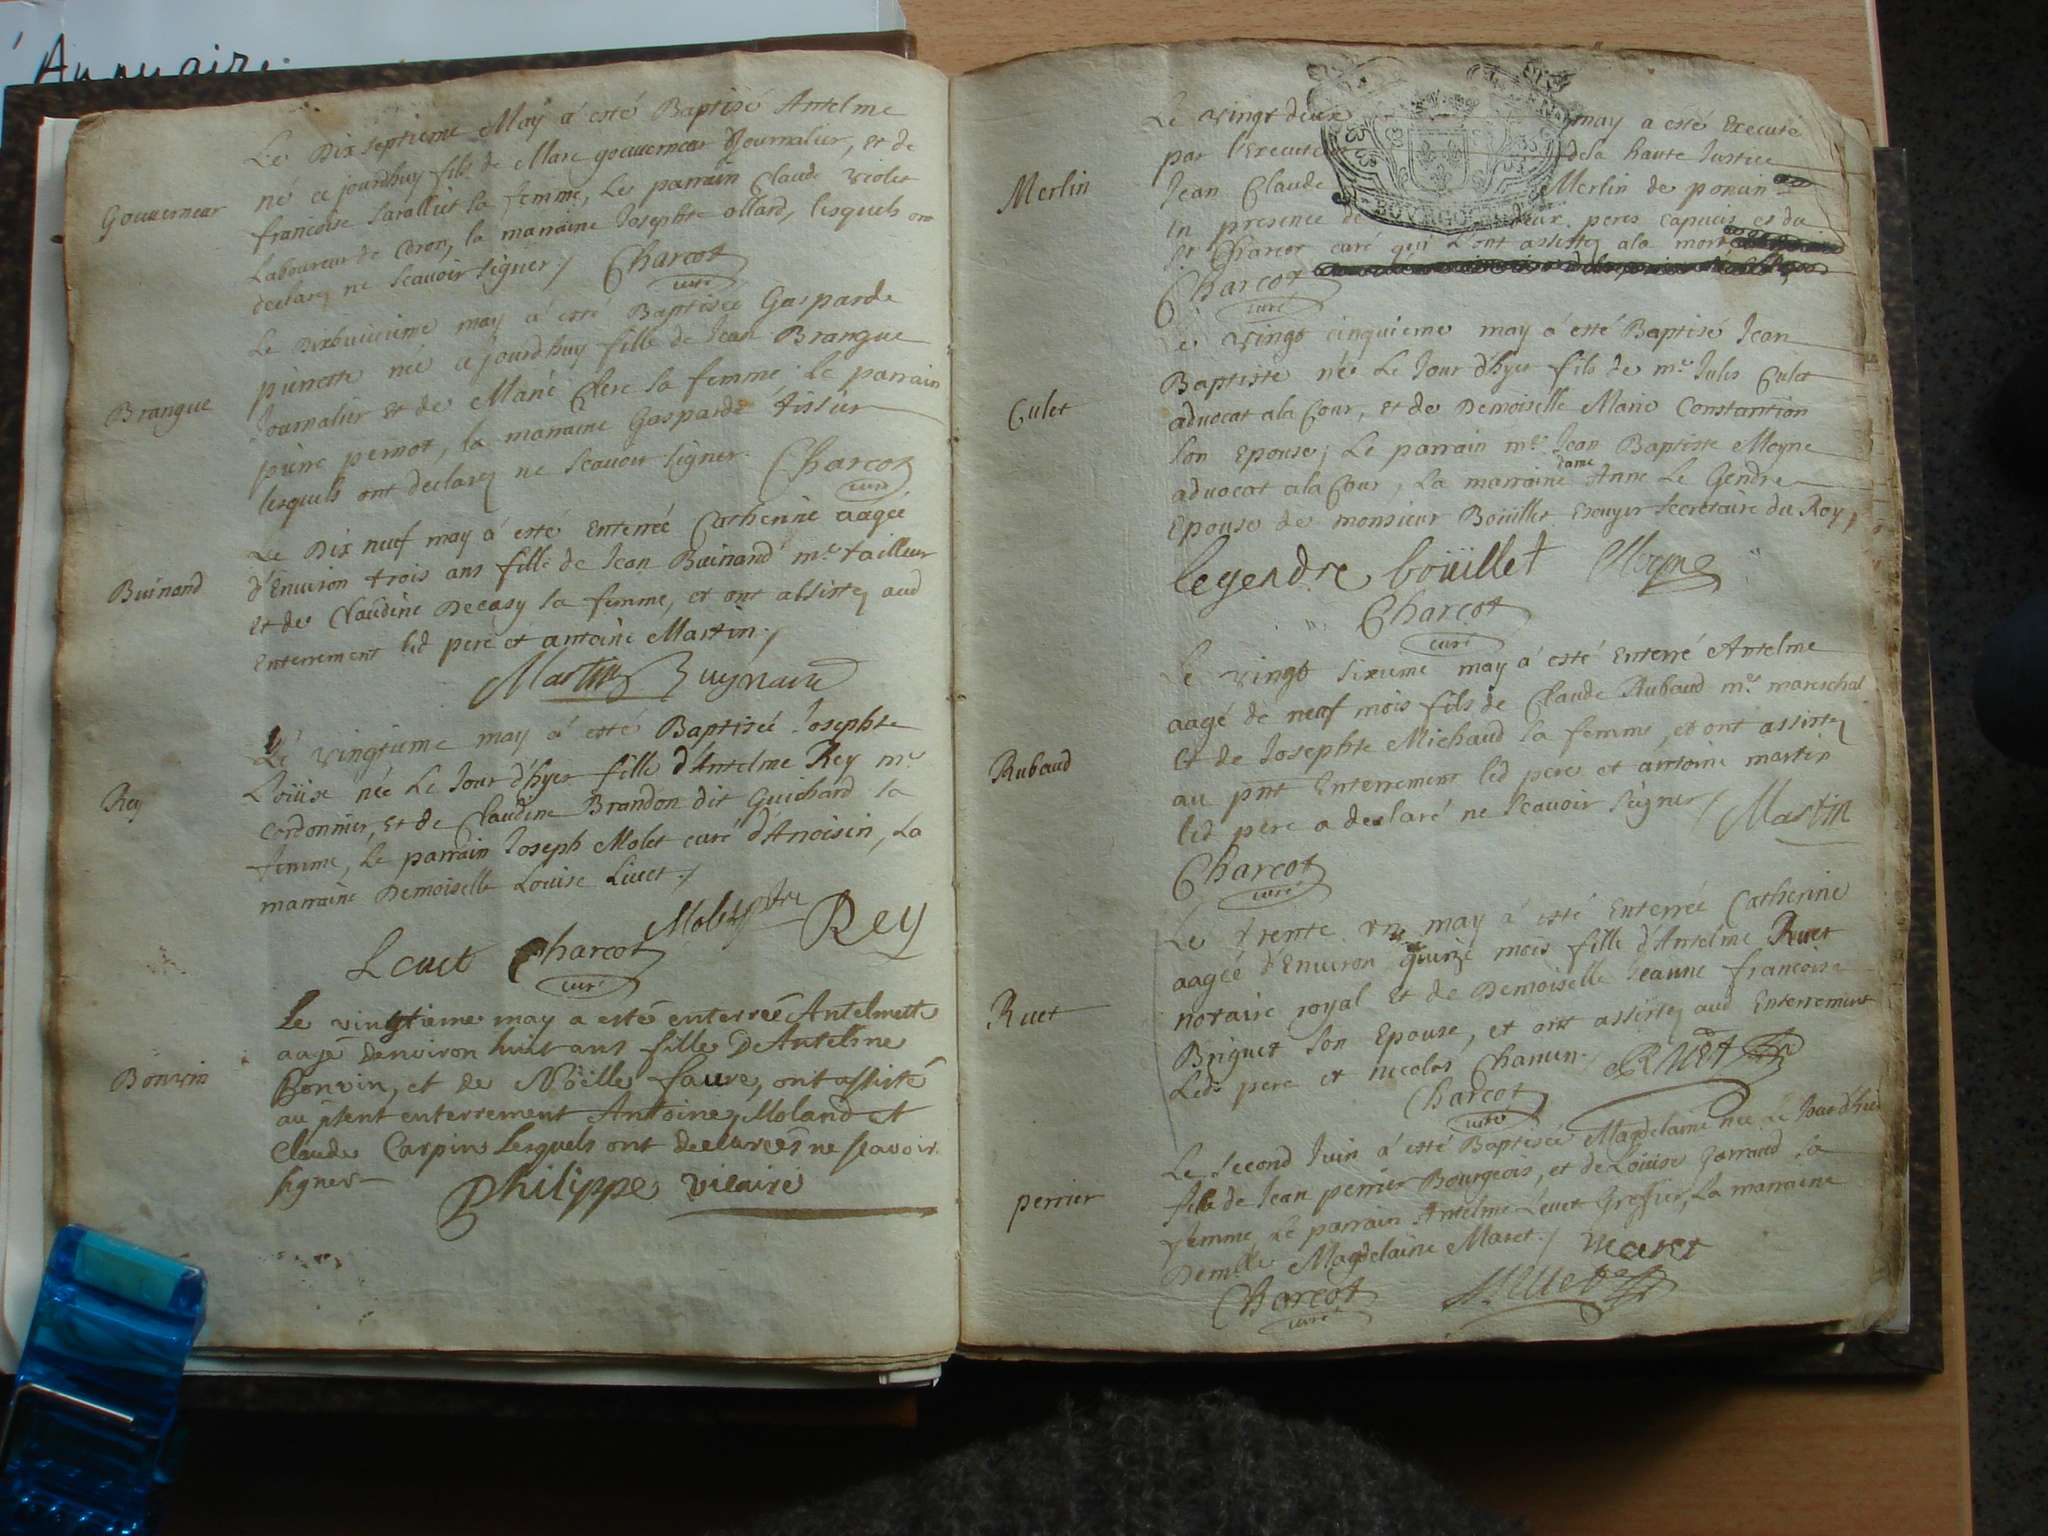 Annuaire
Le Dix septieme May à esté Baptisé Antelme
né ce jourdhuy fils de Marc gouuerneur Journalier, et de
Gouuerneur
francoise Saralliet sa femme, Le parrain Claude violet
Laboureur de Coron, la marraine Josephte ollard, lesquels ont
declarez ne scauoir signer /
Charcot
curé
Le Dixhuitieme may à esté Baptisée Gasparde
pierrette née ce jourdhuy fille de Jean Brangue
Brangue
Journalier et de Marie Clerc sa femme; Le parrain
pierre pernot, la marraine Gasparde tissier
lesquels ont declarez ne scauoir signer.
Charcot
curé
Le Dix neuf may à esté Enterrée Catherine aagée
d'Enuiron trois ans fille de Jean Buinand me tailleur
Buinand
et de Claudine Decasy sa femme, et ont assistez aud
Enterrement led pere et antoine Martin /
Martin Buynand
Le vingtieme may à esté Baptisée Josephte
Loüise née Le Jour d'hyer fille d'Antelme Rey me
Rey
cordonnier, et de Claudine Brandon dit Guichard sa
femme, Le parrain Joseph Molet curé d'Anoisin, La
marraine Demoiselle Louise Liuet /
Leuet Charcot Molet ptre Rey
curé
Le vingtieme may a esté enterrée Antelmette
aagé denviron huit ans fille De Antelme
Bonvin
Bonvin, et de Nöille faure, ont assisté
au psent enterrement Antoine Moland et
Claude Carpin Lesquels ont declarées ne scavoir
signer
Philippe vicaire
Le vingt deux may a esté Execute
par l'Executeur dela haute Justice
Merlin
Jean Claude Merlin de poncin
en presence de deux peres capucins et du
Sr Charcot curé qui L'ont assistez ala mort
Charcot
curé
BOVRGO
Le vingt cinquieme may à esté Baptisé Jean
Baptiste née Le Jour d'hyer fils de me Jules Culet
Culet
aduocat ala Cour, et de Demoiselle Marie Constantion
son Epouse; Le parrain me Jean Baptiste Moyne
aduocat ala Cour, La marraine dame Anne Le Gendre
Epouse de monsieur Boüillet Escuyer secretaire du Roy,
legendre boüillet Moyne
Charcot
curé
Le vingt sixieme may à esté Enterré Antelme
aagé de neuf mois fils de Claude Rubaud me mareschal
Rubaud
et de Josephte Michaud sa femme, et ont assistez
au pnt Enterrement led pere et antoine martin
led pere a declaré ne scauoir signer /
Martin
Charcot
curé
Le trente un may à esté Enterrée Catherine
aagée d'Enuiron quinze mois fille d'Antelme Ruet
Ruet
notaire royal et de Demoiselle Jeanne francoise
Briguet son Epouse, et ont assistez aud Enterrement
Ledt pere et nicolas Chanin.
Ruet
Charcot
curé
Le second Juin à esté Baptisée Magdelaine née Le Jour d'hier
perrier
fille de Jean perrier Bourgeois, et de Loüise Garraud sa
femme, Le parrain Antelme Leuet Greffier, La marraine
Demlle Magdelaine Maret. /
maret
Charcot
curé